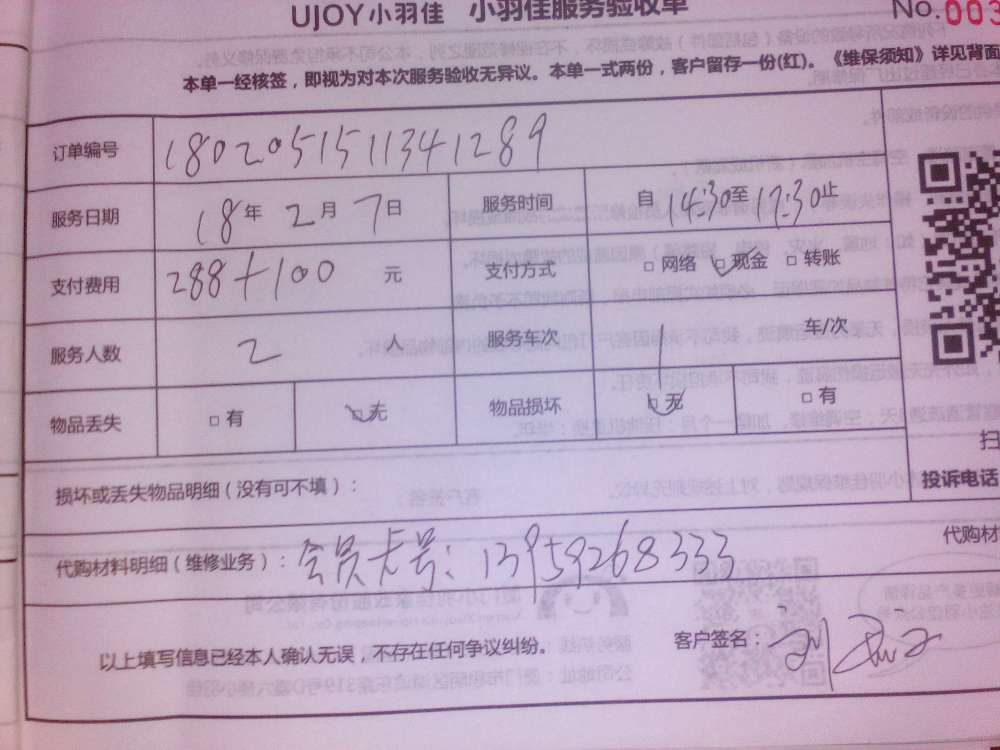 UJOY小羽佳 小羽佳服务验收单 No.003
本单一经核签，即视为对本次服务验收无异议。本单一式两份，客户留存一份(红)。《维保须知》详见背面
订单编号 1802051511341289
服务日期 18年2月7日 服务时间 自14:30至17:30止
支付费用 288+100 元 支付方式 □网络 □现金 □转账
服务人数 2 人 服务车次 1 车/次
物品丢失 □有 □无 物品损坏 □无 □有
扫
损坏或丢失物品明细（没有可不填）： 投诉电话
代购材
代购材料明细（维修业务）：会员卡号：13959268333
以上填写信息已经本人确认无误，不存在任何争议纠纷。 客户签名：